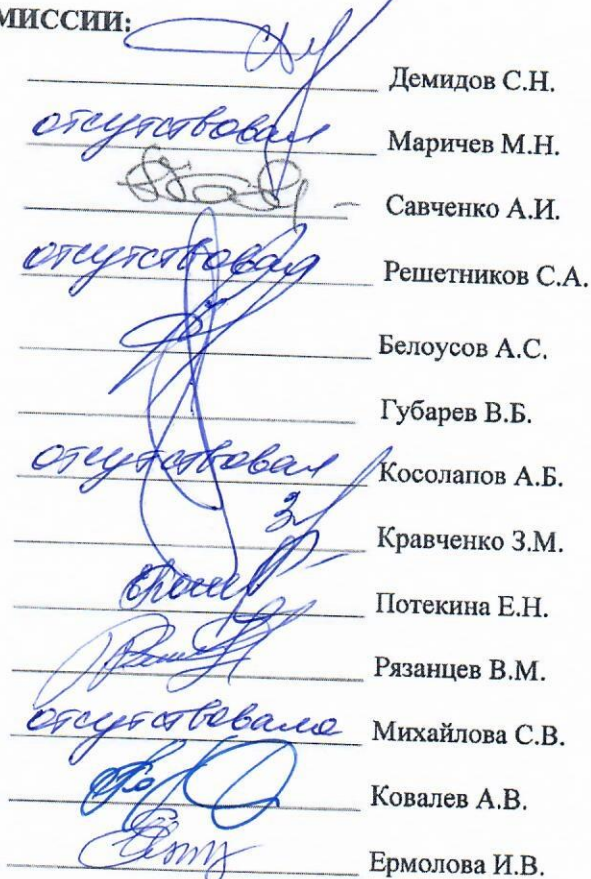 МИССИИ:
Демидов С.Н.
отсутствовал Маричев М.Н.
Савченко А.И.
отсутствовал Решетников С.А.
Белоусов А.С.
Губарев В.Б.
отсутствовал Косолапов А.Б.
Кравченко З.М.
Потекина Е.Н.
Рязанцев В.М.
отсутствовала Михайлова С.В.
Ковалев А.В.
Ермолова И.В.